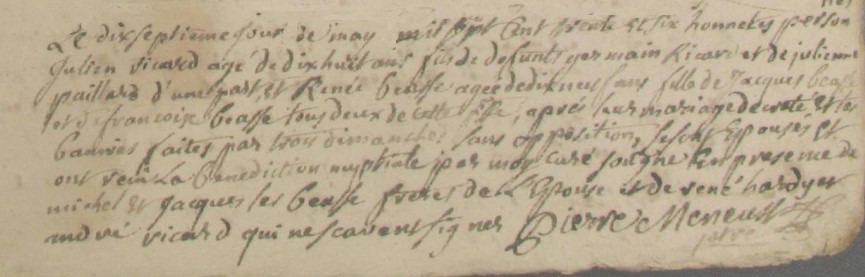 Le dixseptieme jour de may mil sept Cent trente et six honnetes person
Julien ricard agé de dixhuit ans fils de defunts germain Ricard et de julienne
paillard d'une part, et Renée beasse agee de dixneuf ans fille de Jacques beasse
et de francoise beasse tous deux de cette psse, aprés leur mariage decreté et les
bannies faites par trois dimanches sans opposition, se sont Epousés Et
ont recü La benediction nuptiale par moy curé soubgne En presence de
michel Et jacques les beasse freres de L'Epouse et de rené hardy et
andré ricard qui ne scavent signer Pierre Meneust
ptre